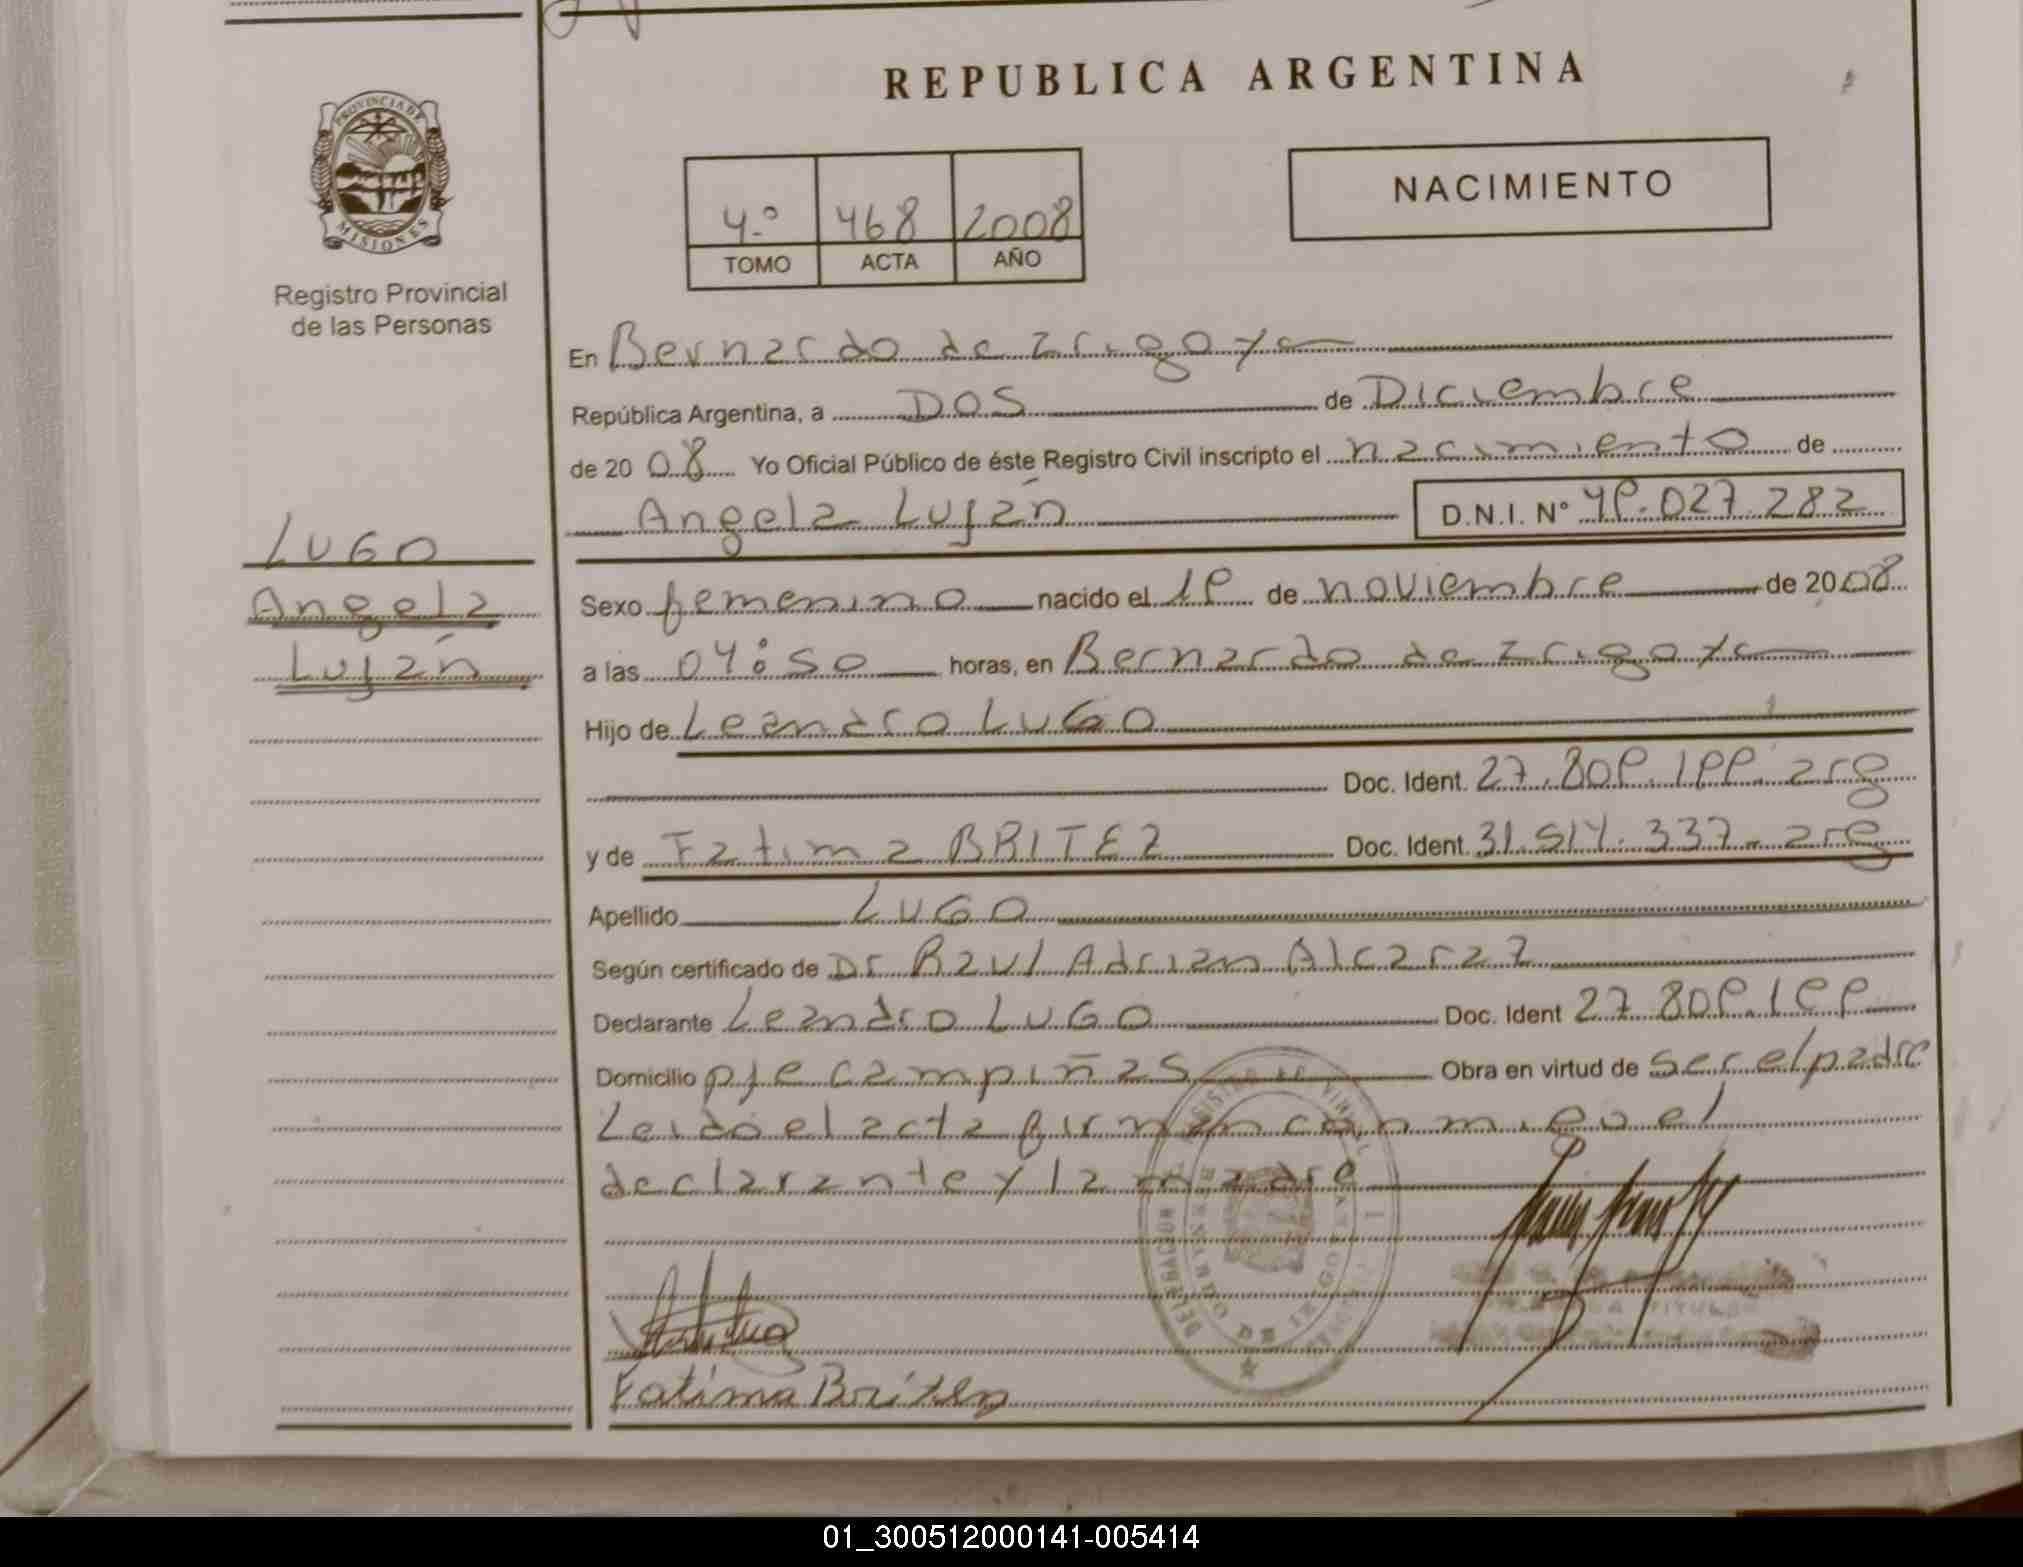 REPUBLICA ARGENTINA
PROVINCIA DE
MISIONES
Registro Provincial
de las Personas
NACIMIENTO
4º 468 2008
TOMO ACTA AÑO
En Bernardo de Irigoyen
República Argentina, a DOS de Diciembre
de 2008 Yo Oficial Público de éste Registro Civil inscripto el nacimiento de
Angela Luján D.N.I. Nº 49.027.282
LUGO
Angela
Luján
Sexo femenino nacido el 19 de noviembre de 2008
a las 04:50 horas, en Bernardo de Irigoyen
Hijo de Leandro LUGO
Doc. Ident. 27.809.199. arg
y de Fatima BRITEZ Doc. Ident. 31.514.337- arg
Apellido LUGO
Según certificado de Dr Raul Adrian Alcaraz
Declarante Leandro LUGO Doc. Ident 27.809.199
Domicilio pje campiñas Obra en virtud de ser el padre
Leido el acta firman conmigo el
declarante y la madre
DELEGACION
BERNARDO DE IRIGOYEN
TITULAR
Fatima Britez
01_300512000141-005414